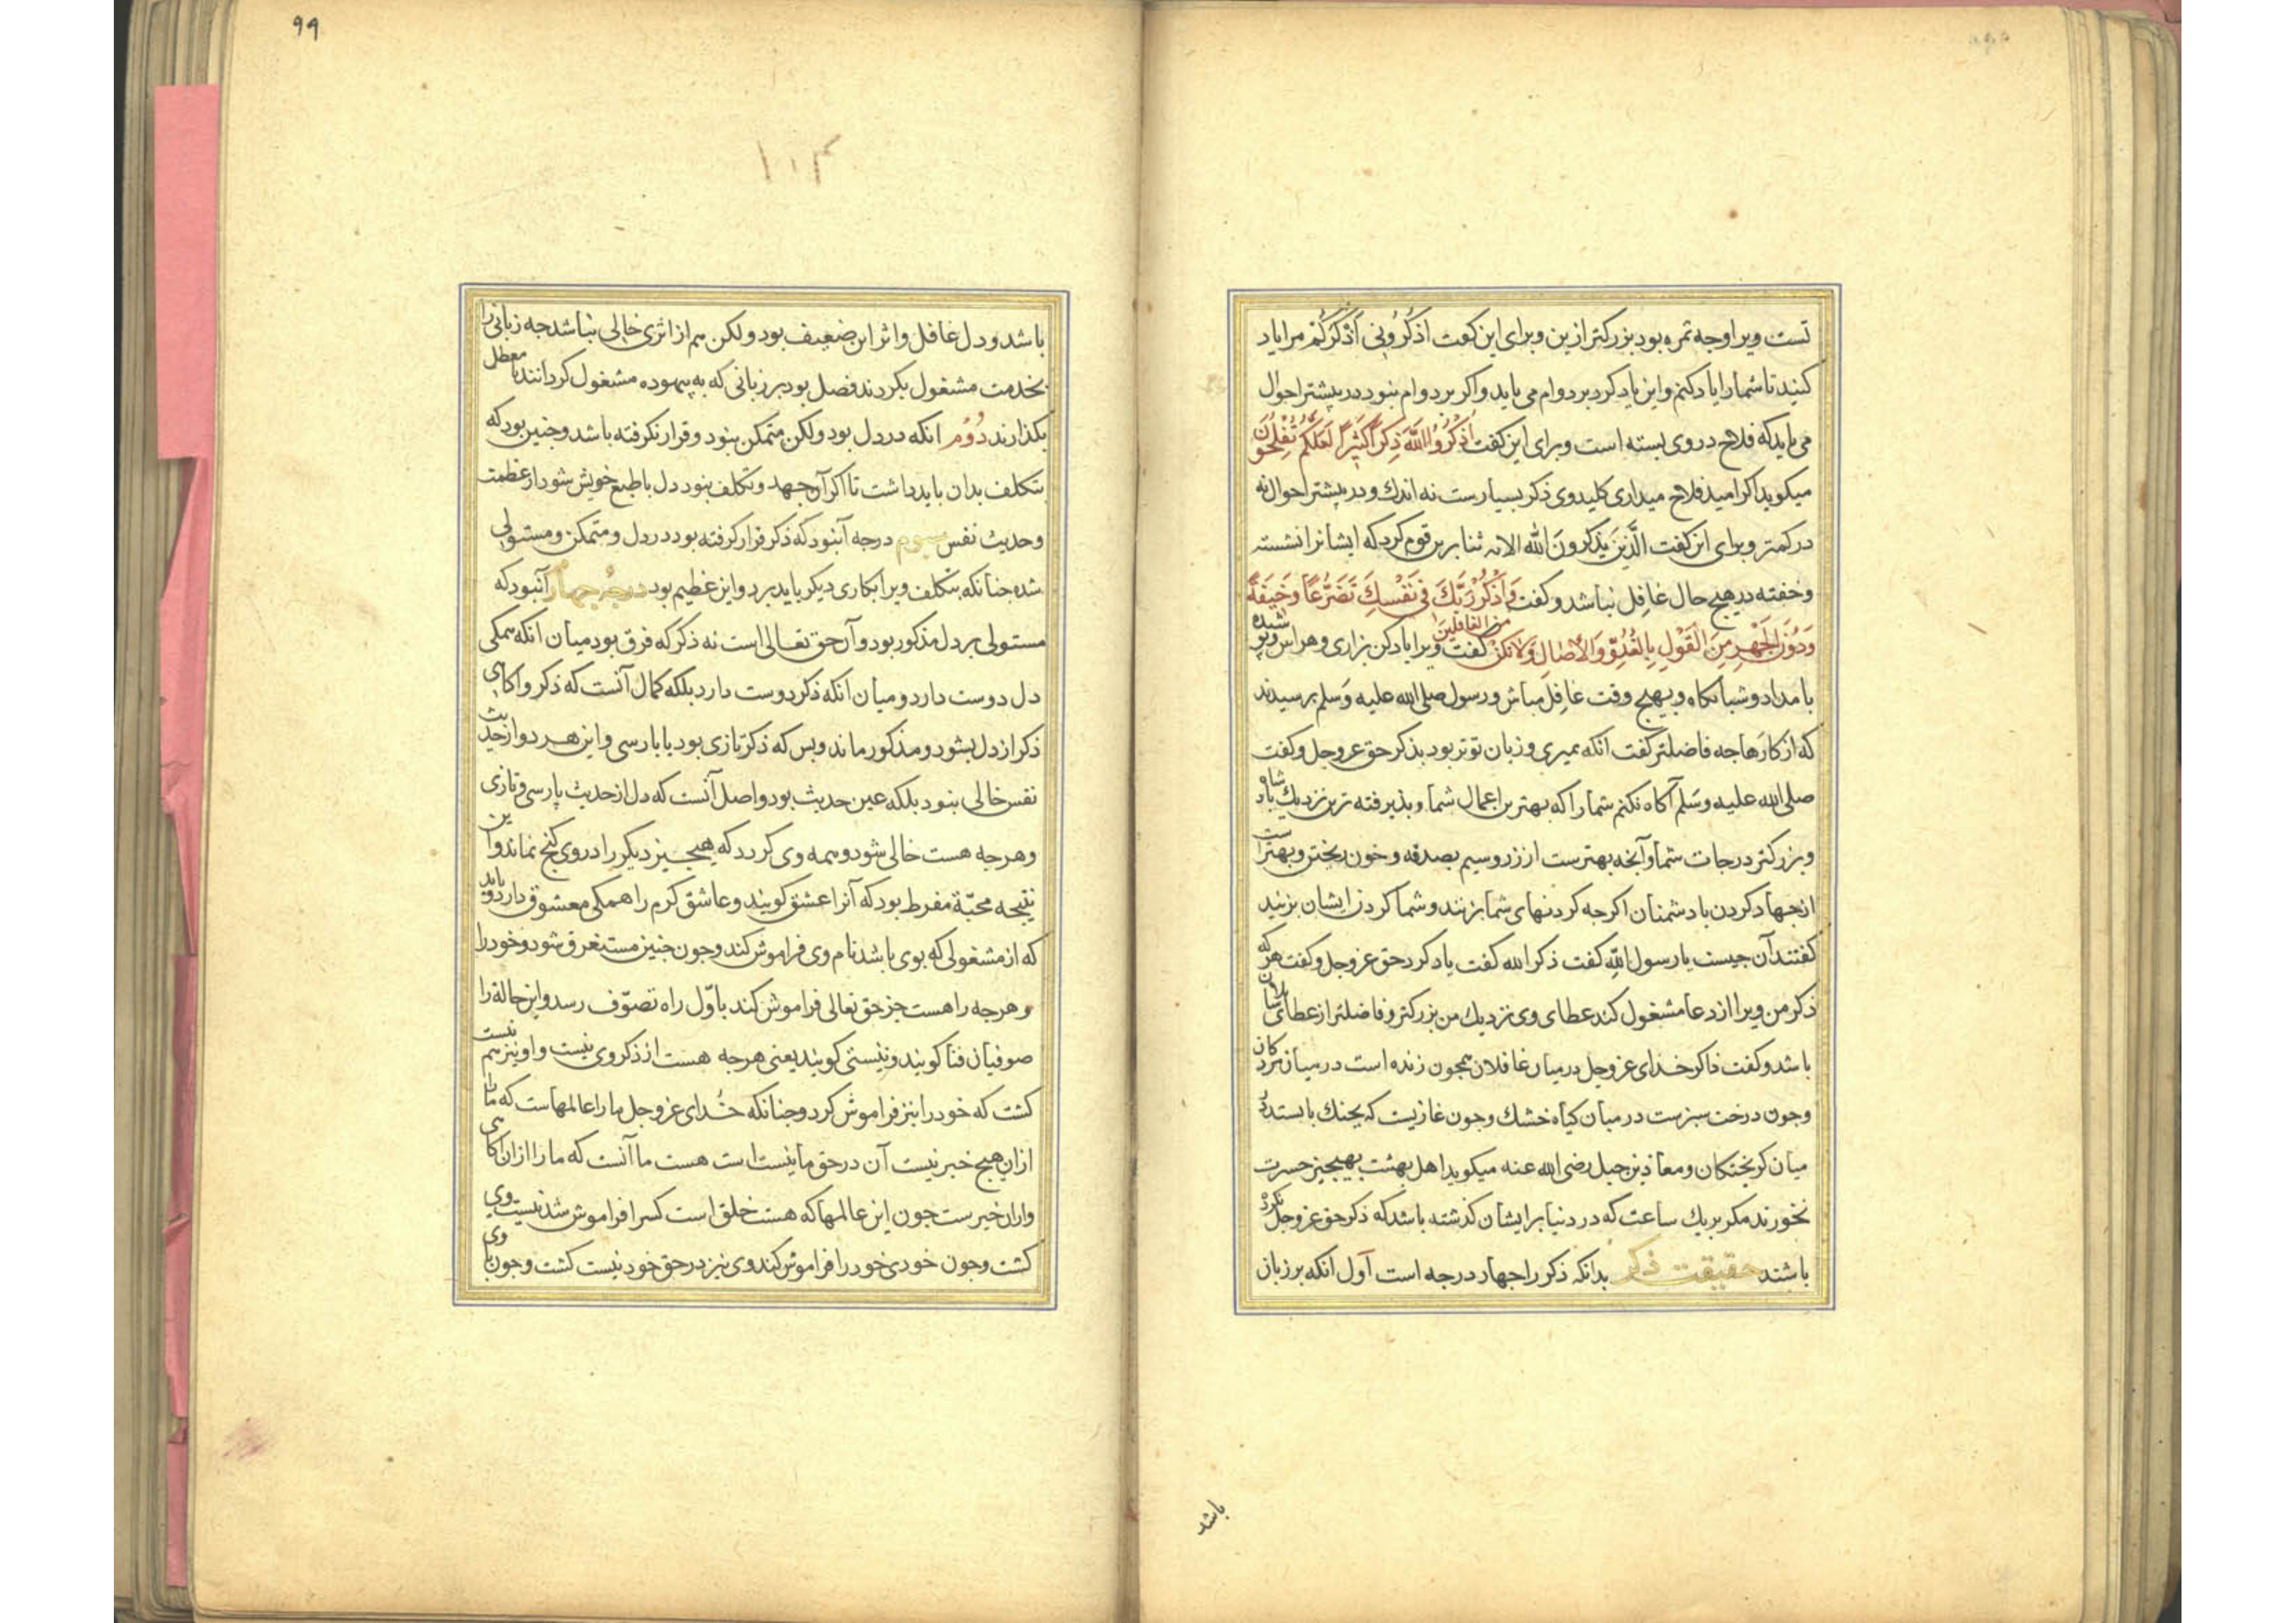 تست ویرا وجه ثمره بود بزرکتر ازین وبرای این کفت اذکرونی اذکرکم مرا یاد
کنید تا شما را یاد کنم واین یاد کرد بر دوام می باید واکر بر دوام نبود در بیشتر احوال
می باید که فلاح در وی بسته است وبرای این کفت اُذْکُرُوا اللّٰهَ ذِکْراً کَثِیراً لَعَلَّکُمْ تُفْلِحُونَ
میکوید اکر امید فلاح میداری کلید وی ذکر بسیارست نه اندك ودر بیشتر احوال نه
در کمتر وبرای این کفت الَّذِینَ یَذْکُرونَ اللّٰه الایه ثنا برین قوم کرد که ایشانرا نشسته
وخفته در هیج حال غافل نباشد وکفت وَاذْکُرْ رَبَّكَ فِی نَفْسِكَ تَضَرُّعاً وَخِیفَةً
وَدُونَ الْجَهْرِ مِنَ الْقَوْلِ بِالْغُدُوِّ وَالْاٰصَالِ وَلَا تَکُنْ مِنَ الغَافِلِینَ کفت ویرا یاد کن بزاری وهراس وپوشیده
بامداد وشبانکاه وبهیج وقت غافل مباش ورسول صلی الله علیه وسلم برسیدند
که از کارها جه فاضلتر کفت انکه بمیری وزبان تو تر بود بذکر حق عز وجل وکفت
صلی الله علیه وسلم آکاه نکنم شما را که بهترین اعمال شما وبذیرفته ترین نزدیك باد شاه
وبزرکتر درجات شما وآنجه بهترست از زر وسیم بصدقه وخون ریختن وبهترست
از جهاد کردن با دشمنان اکرجه کردنهای شما بزنند وشما کردن ایشان بزنید
کفتند آن جیست یا رسول الله کفت ذکر الله کفت یاد کرد حق عز وجل وکفت هرکه
ذکر من ویرا از دعا مشغول کند عطای وی نزدیك من بزرکتر وفاضلتر از عطای سایلان
باشد وکفت ذاکر خدای عز وجل در میان غافلان همجون زنده است در میان مردکان
وجون درخت سبزست در میان کیاه خشك وجون غازیست که بجنك بایستد
میان کریختکان ومعاذ بن جبل رضی الله عنه میکوید اهل بهشت بهیجیز حسرت
نخورند مکر بریك ساعت که در دنیا بر ایشان کذشته باشد که ذکر حق عز وجل نکرده
باشند حقیقت ذکر بدانکه ذکر را جهار درجه است آول انکه بر زبان
باشد
۹۹
۱۰۲
باشد ودل غافل واثر این ضعیف بود ولکن هم از اثری خالی نباشد جه زبانی را
بخدمت مشغول بکردند فضل بود بر زبانی که به بیهوده مشغول کردانند یا معطل
بکذارند دُوُم انکه در دل بود ولکن متمکن نبود وقرار نکرفته باشد وجنین بود که
بتکلف بدان باید داشت تا اکر آن جهد وتکلف نبود دل با طبع خویش شود از غفلت
وحدیث نفس سیوم درجه آنبود که ذکر قرار کرفته بود در دل ومتمکن ومستولی
شده جنانکه بتکلف ویرا بکاری دیکر باید برد واین عظیم بود درجهٔ جهارم آنبود که
مستولی بر دل مذکور بود وآن حق تعالی است نه ذکر که فرق بود میان انکه همکی
دل دوست دارد ومیان انکه ذکر دوست دارد بلکه کمال آنست که ذکر وآکاهی
ذکر از دل بشود ومذکور ماند وبس که ذکر تازی بود یا بارسی واین هر دو از حدیث
نفس خالی نبود بلکه عین حدیث بود واصل آنست که دل از حدیث پارسی وتازی
وهرجه هست خالی شود وهمه وی کردد که هیجیز دیکر را در وی کنج نماند واین
نتیجه محبّة مفرط بود که آنرا عشق کویند وعاشق کرم را همکی معشوق دارد وباید
که از مشغولی که بوی باشد نام وی فراموش کند وجون جنین مستغرق شود وخود را
وهرجه را هست جز حق تعالی فراموش کند باوّل راه تصوّف رسد واین حالة را
صوفیان فنا کویند ونیستی کویند یعنی هرجه هست از ذکر وی نیست واو نیز هم نیست
کشت که خود را نیز فراموش کرد وجنانکه خُدای عز وجل ما را عالمهاست که ما را
ازان هیج خبر نیست آن در حق ما نیست است هست ما آنست که ما را ازان آکاهی
وازان خبرست جون این عالمها که هست خلق است کسرا فراموش شد نیست وی
کشت وجون خودی خود را فراموش کند وی نیز در حق خود نیست کشت وجون با وی